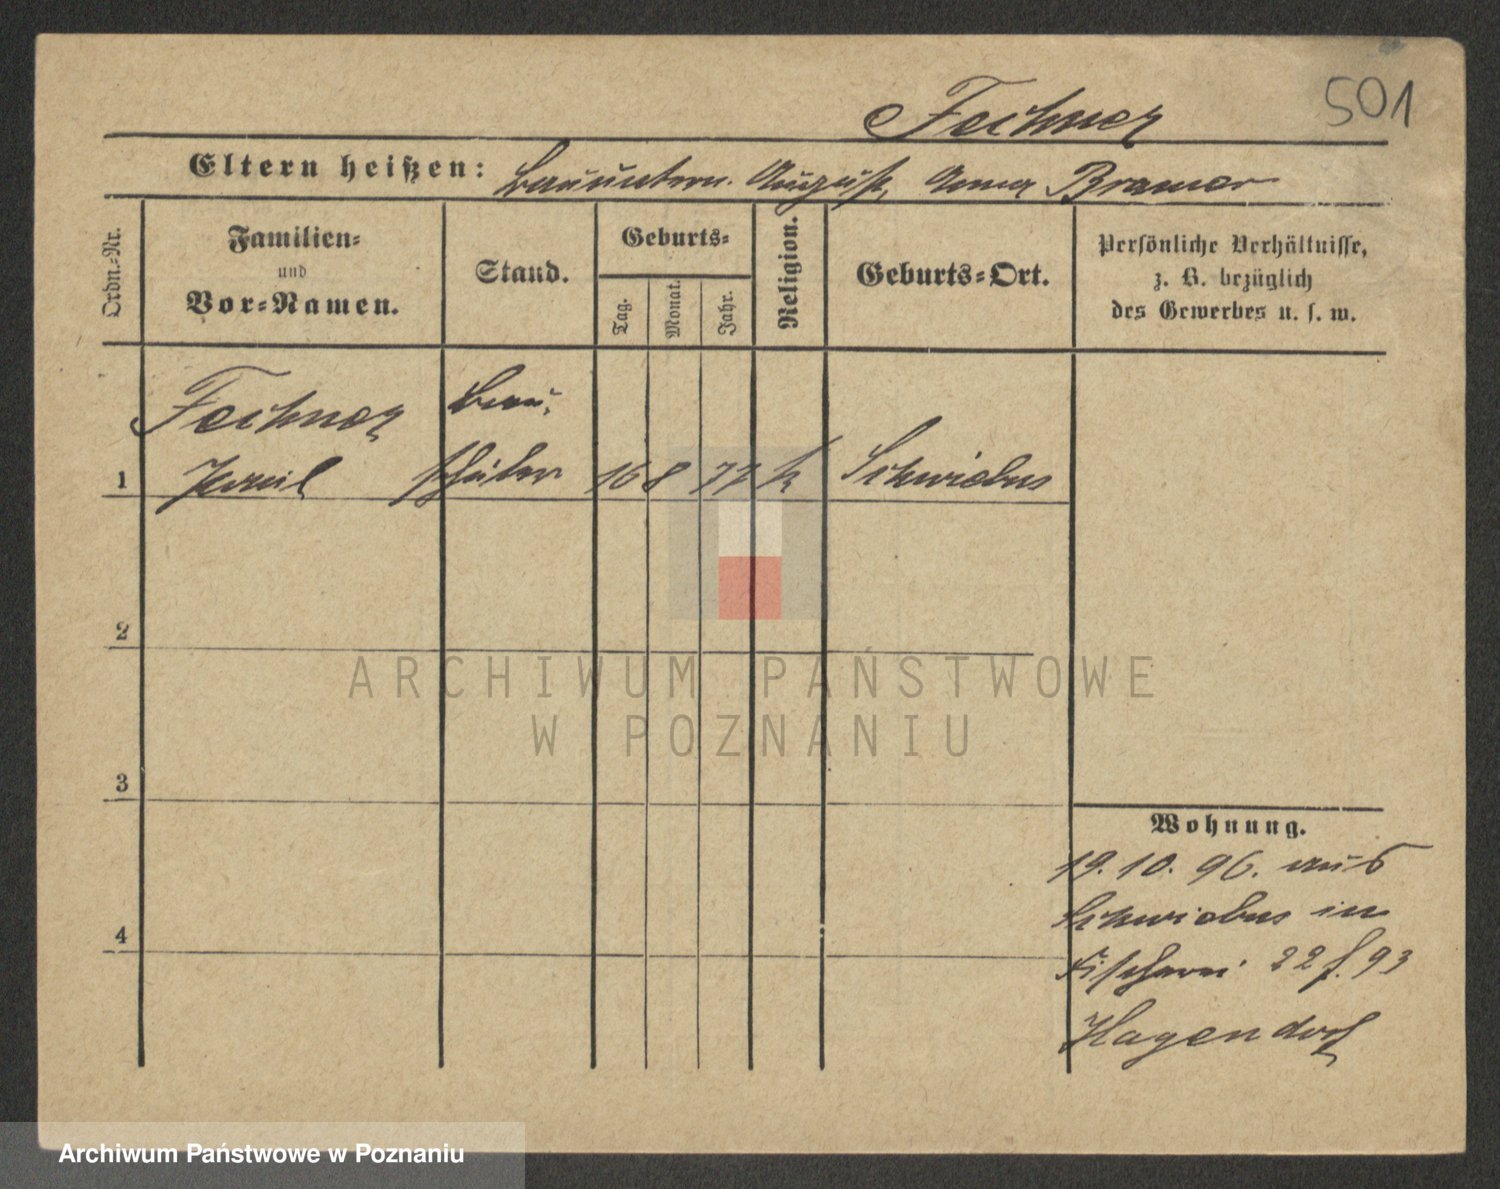 501
Fechner
Eltern heißen: Bauuntern. August, Anna Bramer
Ordn.-Nr.
Familien-
und
Vor-Namen.
Stand.
Geburts-
Tag.
Monat.
Jahr.
Religion.
Geburts-Ort.
Persönliche Verhältnisse,
z. B. bezüglich
des Gewerbes u. s. w.
Fechner Bau-
1 schüler 16 8 77 k Schwiebus
2
3
4
Wohnung.
19. 10. 96. aus
Schwiebus in
Fischerei 22 f. 93
Hagendorf
ARCHIWUM PAŃSTWOWE
W POZNANIU
Archiwum Państwowe w Poznaniu